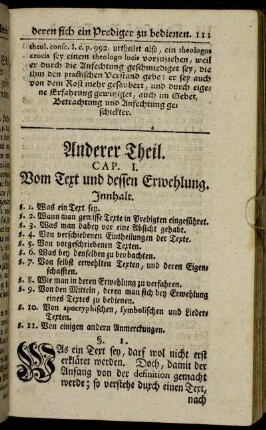 deren sich ein Prediger zu bedienen. 111
theol. consc. I. c. p. 992. urtheilet also, ein theologus
crucis sey einem theologo lucis vorzuziehen, weil
er durch die Anfechtung geschmiediget sey, die
ihm den practischen Verstand gebe: er sey auch
von dem Rost mehr gesaubert, und durch eige-
ne Erfahrung gewitziget, auch im Gebet,
Betrachtung und Anfechtung ge-
schickter.
Anderer Theil.
CAP. I.
Vom Text und dessen Erwehlung.
Innhalt.
§. 1. Was ein Text sey.
§. 2. Wann man gewisse Texte in Predigten eingeführet.
§. 3. Was man dabey vor eine Absicht gehabt.
§. 4. Von verschiedenen Eintheilungen der Texte.
§. 5. Von vorgeschriebenen Texten.
§. 6. Was bey denselben zu beobachten.
§. 7. Von selbst erwehlten Texten, und deren Eigen-
schafften.
§. 8. Wie man in deren Erwehlung zu verfahren.
§. 9. Von den Mitteln, deren man sich bey Erwehlung
eines Textes zu bedienen.
§. 10. Von apocryphischen, symbolischen und Lieder-
Texten.
§. 11. Von einigen andern Anmerckungen.
§. 1.
WAs ein Text sey, darf wol nicht erst
erkläret werden. Doch, damit der
Anfang von der definition gemacht
werde; so verstehe durch einen Text,
nach